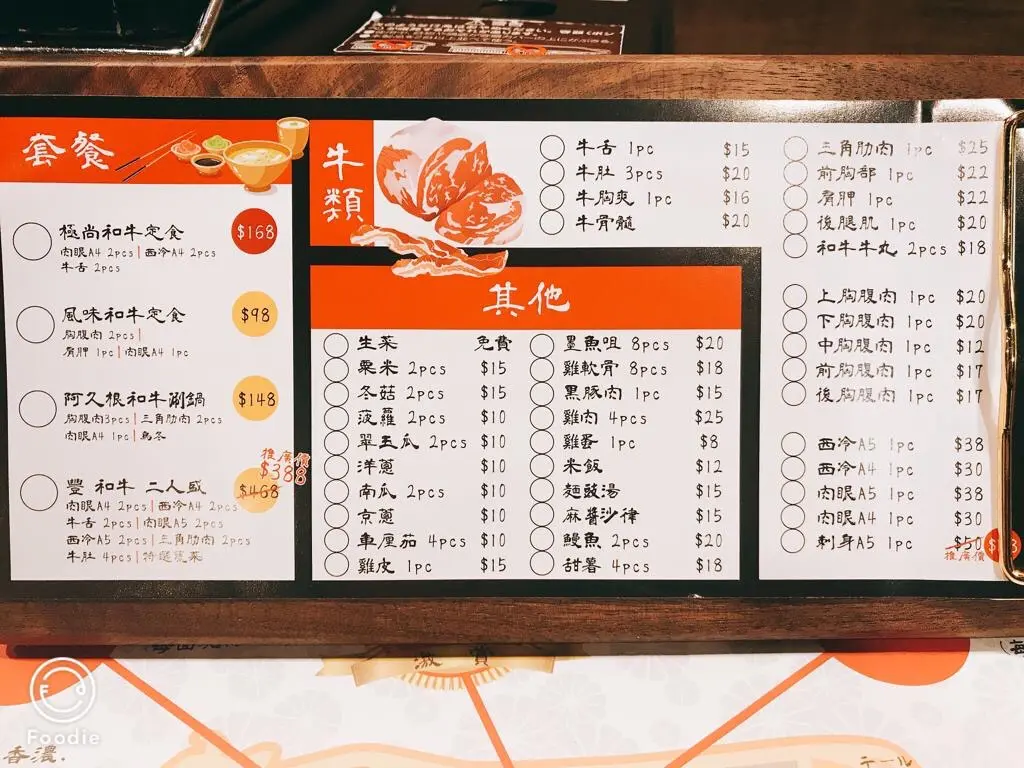 套餐
極尚和牛定食 $168
肉眼A4 2pcs | 西冷A4 2pcs
牛舌 2pcs
風味和牛定食 $98
胸腹肉 2pcs |
肩胛 1pc | 肉眼A4 1pc
阿久根和牛涮鍋 $148
胸腹肉3pcs | 三角肋肉 2pcs
肉眼A4 1pc | 烏冬
推廣價
$388
豐 和牛 二人盛 $468
肉眼A4 2pcs | 西冷A4 2pcs
牛舌 2pcs | 肉眼A5 2pcs
西冷A5 2pcs | 三角肋肉 2pcs
牛肚 4pcs | 特選蔬菜
牛類
牛舌 1pc $15
牛肚 3pcs $20
牛胸爽 1pc $16
牛骨髓 $20
其他
生菜 免費
粟米 2pcs $15
冬菇 2pcs $15
菠蘿 2pcs $10
翠玉瓜 2pcs $10
洋蔥 $10
南瓜 2pcs $10
京蔥 $10
車厘茄 4pcs $10
雞皮 1pc $15
墨魚咀 8pcs $20
雞軟骨 8pcs $18
黑豚肉 1pc $15
雞肉 4pcs $25
雞蛋 1pc $8
米飯 $12
麵豉湯 $15
麻醬沙律 $15
鰻魚 2pcs $20
甜薯 4pcs $18
三角肋肉 1pc $25
前胸部 1pc $22
肩胛 1pc $22
後腿肌 1pc $20
和牛牛丸 2pcs $18
上胸腹肉 1pc $20
下胸腹肉 1pc $20
中胸腹肉 1pc $12
前胸腹肉 1pc $17
後胸腹肉 1pc $17
西冷A5 1pc $38
西冷A4 1pc $30
肉眼A5 1pc $38
肉眼A4 1pc $30
刺身A5 1pc $50
推廣價
激賞
Foodie
香濃.
テール